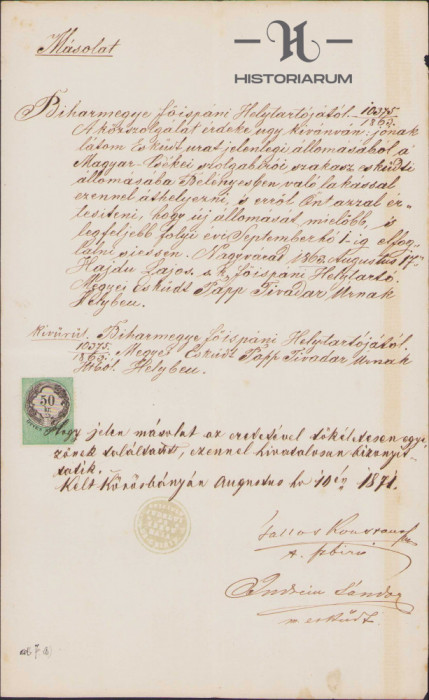 Másolat
HISTORIARUM
Biharmegye főispáni Helytartójától. 10375/1862.
A közszolgálat érdeke ugy kivánván: jónak
látom Esküdt urat jelenlegi állomásából a
Magyar-Csékei szolgabirói szakasz esküdti
állomásába Belényesben való lakással
ezennel áthelyezni, s erről Önt azzal ér-
tesiteni, hogy új állomását mielőbb, s
legfeljebb folyó év September hó 1-ig elfog-
lalni siessen. Nagyvárad 1862 Augustus 17
Hajdu Lajos s. k. főispáni Helytartó.
Megyei Esküdt Papp Tivadar Urnak
Helyben.
Kivűrűl. Biharmegye főispáni Helytartójától.
10375/1862. Megyei Esküdt Papp Tivadar Urnak
Helyben.
50
Hogy jelen másolat az eredetivel tökéletesen egye-
zőnek találtatott, ezennel hivatalosan bizonyit-
tatik.
Kelt Körösbányán Augustus hó 10 én 1871.
Sándor
m. esküdt